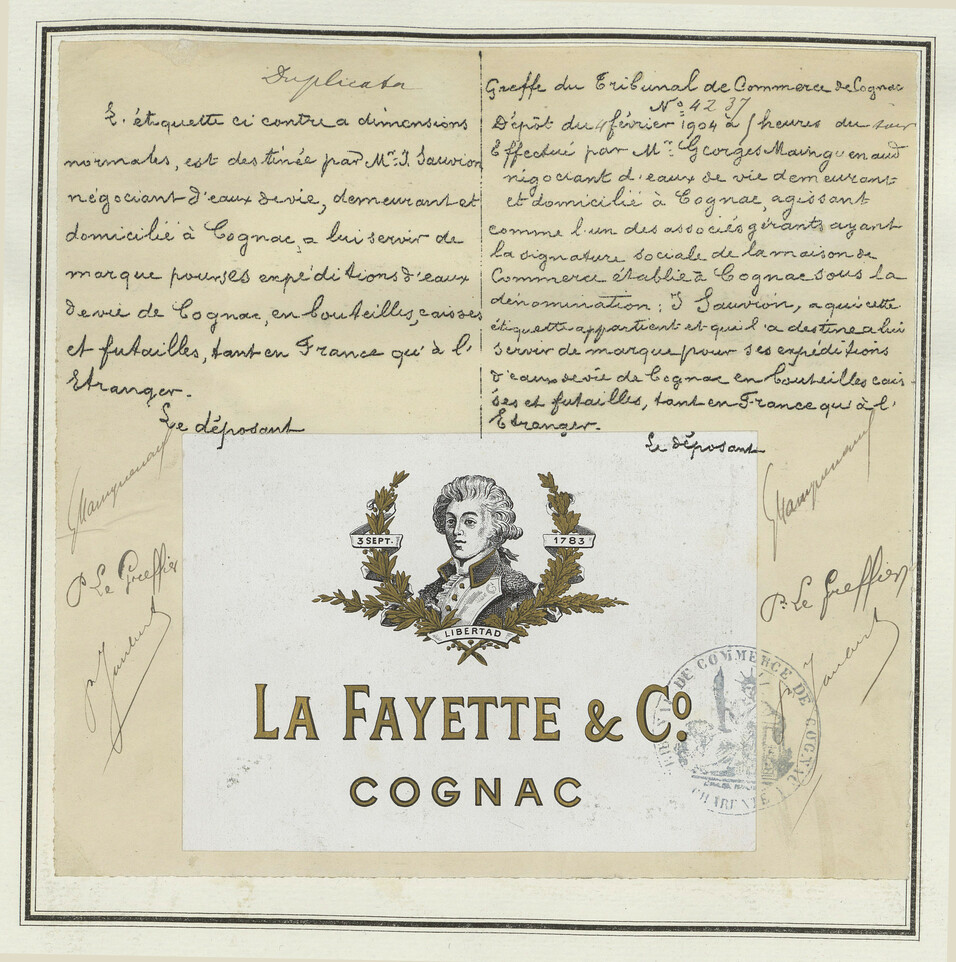 Duplicata
L'étiquette ci contre a dimensions
normales, est destinée par Mr. J. Sauvion
négociant d'eaux de vie, demeurant et
domicilié à Cognac, a lui servir de
marque pour ses expéditions d'eaux
de vie de Cognac, en bouteilles, caisses
et futailles, tant en France qu'à l'
Etranger.
Le déposant
P. Le Greffier
Greffe du Tribunal de Commerce de Cognac
No. 4237
Dépôt du 4 février 1904 à 5 heures du soir
Effectué par Mr. Georges Mainguenaud
négociant d'eaux de vie demeurant
et domicilié à Cognac, agissant
comme l'un des associés gérants ayant
la signature sociale de la maison de
Commerce établie à Cognac sous la
dénomination: J Sauvion, a qui cette
étiquette appartient et qui l'a destine a lui
servir de marque pour ses expéditions
d'eaux de vie de Cognac en bouteilles cais-
ses et futailles, tant en France qu'à l'
Etranger.
Le déposant
P. Le Greffier
3 SEPT. 1783
LIBERTAD
LA FAYETTE & Co.
COGNAC
TRIBUNAL DE COMMERCE DE COGNAC
CHARENTE